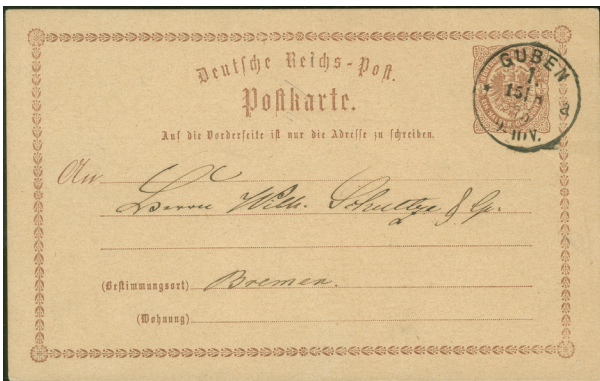 Deutsche Reichs-Post.
Postkarte.
GUBEN
Auf die Vorderseite ist nur die Adresse zu schreiben.
An
Herrn Wilh. Schultze & Co.
(Bestimmungsort) Bremen.
(Wohnung)